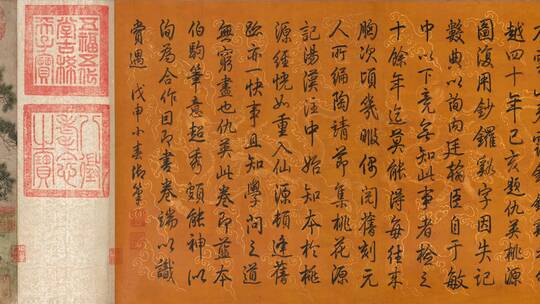 越四十年己亥題仇英桃源
圖復用鈔鑼谿字因失記
數典以詢內廷翰臣自于敏
中以下竟無知此事者檢之
十餘年迄莫能得每往來
胸次頃幾暇偶閱舊刻元
人所編陶靖節集桃花源
記湯漢注中始知本於桃
源經恍如重入仙源頓逢舊
跡亦一快事且知學問之道
無窮盡也仇英此卷即藍本
伯駒筆意超秀頗能神似
洵為合作因即書卷端以識
賞遇 戊申小春御筆
五福五代
堂古稀
天子寶
八徵
耄念
之寶